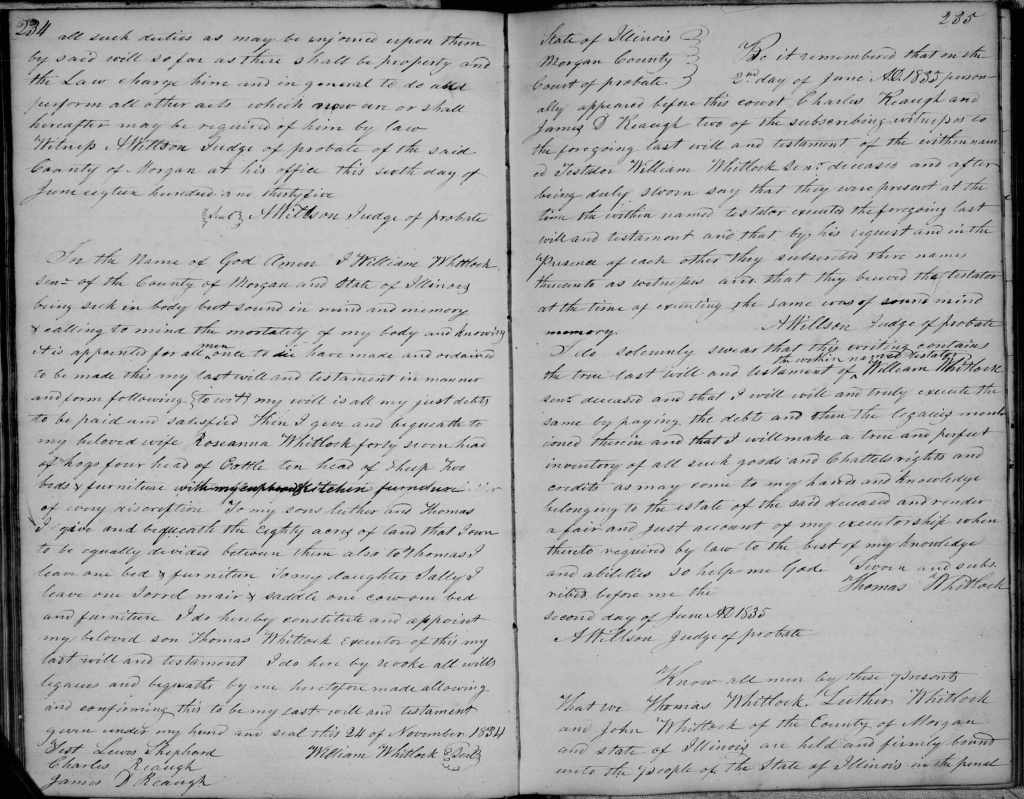 234
all such duties as may be enjoined upon them
by said will so far as there shall be property and
the Law charge him and in general to do and
perform all other acts which now are or shall
hereafter may be required of him by law
Witness A Willson Judge of probate of the said
County of Morgan at his office this sixth day of
June eighteen hundred and thirty five
A Willson Judge of probate
In the Name of God Amen I William Whitlock
senr of the County of Morgan and State of Illinois
being sick in body but sound in mind and memory
& calling to mind the mortality of my body and knowing
it is appointed for all men once to die have made and ordained
to be made this my last will and testament in manner
and form following (to wit) my will is all my just debts
to be paid and satisfied Then I give and bequeath to
my beloved wife Roseanna Whitlock forty seven head
of hogs four head of Cattle ten head of Sheep Two
beds & furniture with my cupboard Kitchen furniture
of every discription To my sons luther and Thomas
I give and bequeath the Eighty acres of land that I own
to be equally divided between them also to Thomas I
leave one bed & furniture To my daughter Sally I
leave one Sorrel mair & saddle one cow one bed
and furniture I do hereby constitute and appoint
my beloved son Thomas Whitlock Executor of this my
last will and testament I do here by revoke all wills
legacies and bequeaths by me heretofore made allowing
and confirming this to be my last will and testament
given under my hand and seal this 24 of November 1834
Test Lewis Shephord William Whitlock Seal
Charles Reaugh
James D Reaugh
235
State of Illinois
Morgan County
Court of probate
Be it remembered that on the
2nd day of June AD. 1835 person-
ally appeared before this court Charles Reaugh and
James D Reaugh two of the subscribing witnesses to
the foregoing last will and testament of the within nam
ed Testator William Whitlock Senr deceased and after
being duly sworn say that they were present at the
time the within named testator executed the foregoing last
will and testament and that by his request and in the
Presence of each other they subscribed there names
thereunto as witnesses and that they beleved the testator
at the time of executing the same was of sound mind
memory. A Willson Judge of probate
I do solemnly swear that this writing contains
the true last will and testament of the within named testator William Whitlock
senr deceased and that I will well and truly execute the
same by paying the debts and then the legacies ment
ioned therein and that I will make a true and perfect
inventory of all such goods and Chattels rights and
credits as may come to my hands and knowledge
belonging to the estate of the said deceased and render
a fair and just account of my executorship when
thereto required by law to the best of my knowledge
and abilities so help me Gode Sworn and subs
cribed before me the Thomas Whitlock
second day of June AD 1835
A Willson Judge of probate
Know all men by these presents
That we Thomas Whitlock, Luther Whitlock
and John Whitlock of the County of Morgan
and state of Illinois are held and firmly bound
unto the people of the State of Illinois in the penal